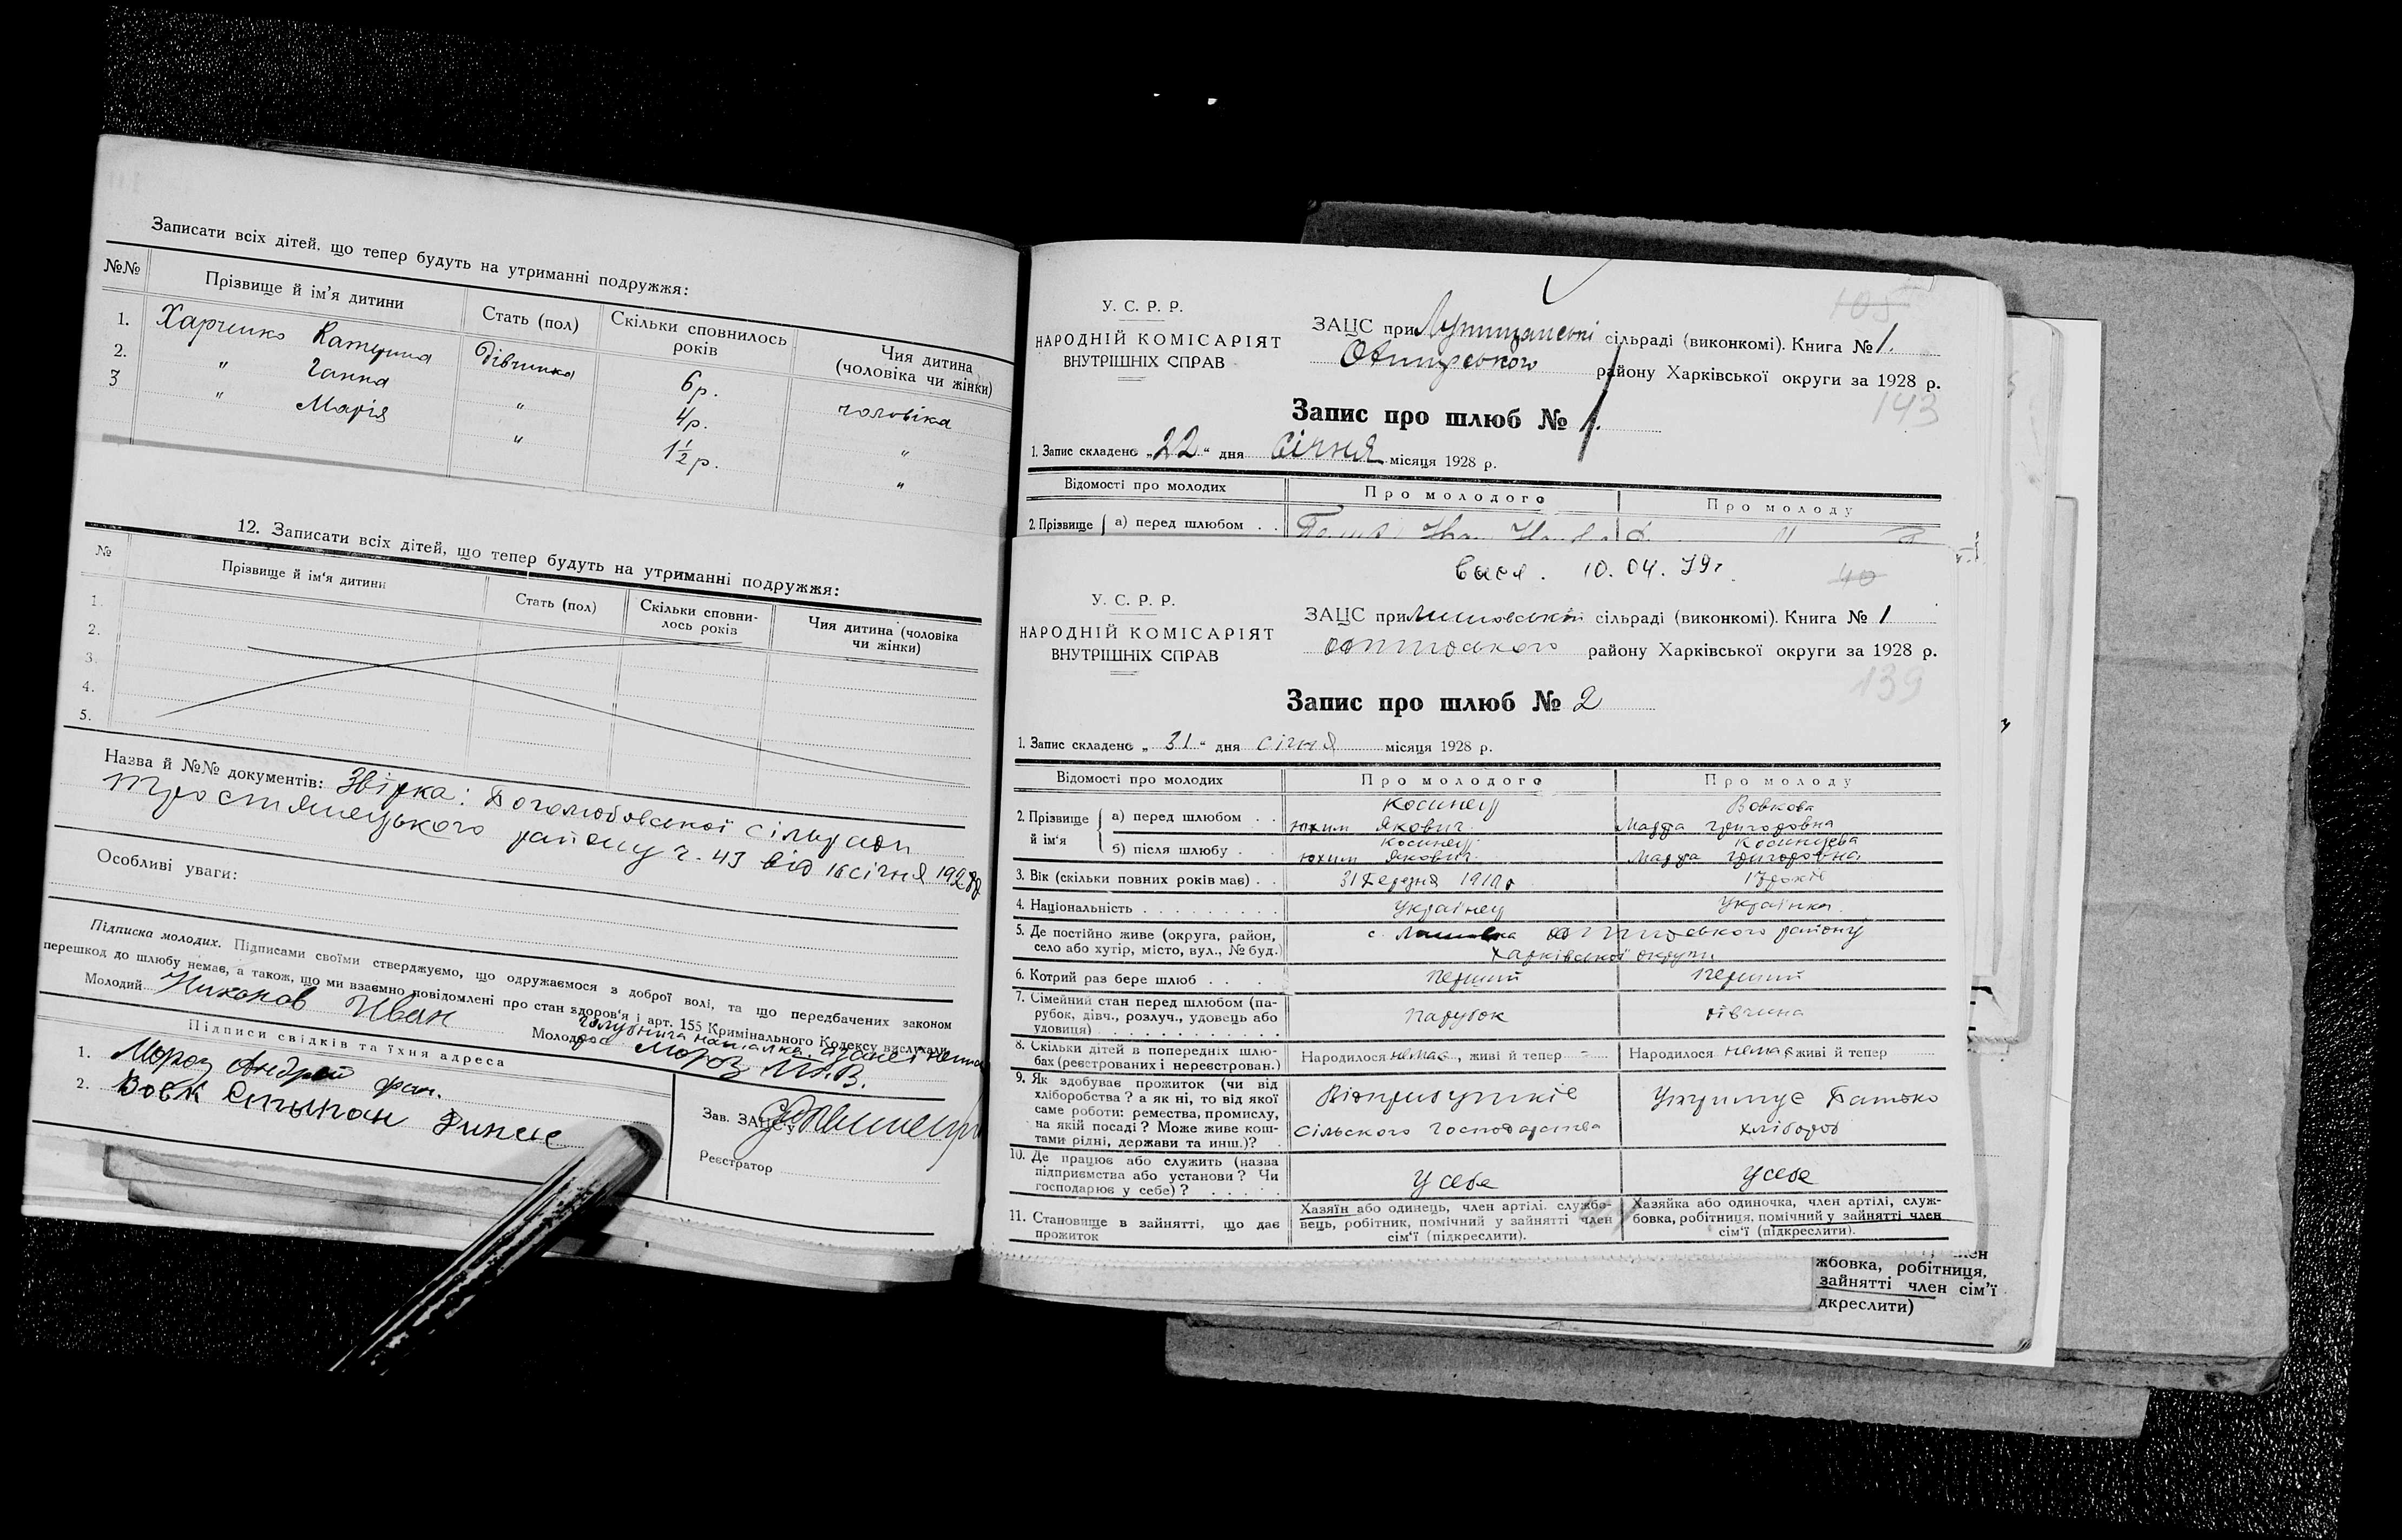 Записати всіх дітей, що тепер будуть на утриманні подружжя:
№№ Прізвище й ім'я дитини Стать (пол) Скільки сповнилось років Чия дитина (чоловіка чи жінки)
1. Харченко Катерина дівчинка 6р. чоловіка
2. " Ганна " 4р. "
3 " Марія " 1½ р. "
12. Записати всіх дітей, що тепер будуть на утриманні подружжя:
№ Прізвище й ім'я дитини Стать (пол) Скільки сповни-
лось років Чия дитина (чоловіка
чи жінки)
1.
2.
3.
4.
5.
Назва й №№ документів: Звірка: Боголюбовської сільради
Тростянецького району ч. 43 від 16 січня 1928р
Особливі уваги:
Підписка молодих. Підписами своїми стверджуємо, що одружаємося з доброї волі, та що передбачених законом
перешкод до шлюбу немає, а також, що ми взаємно повідомлені про стан здоров'я і арт. 155 Кримінального Кодексу вислухали.
Молодий Никонов Иван Молода
Мороз
Підписи свідків та їхня адреса
1. Мороз Андрей
2. Вовк Зав. ЗАЦС'у
Реєстратор
У. С. Р. Р.
НАРОДНІЙ КОМІСАРІЯТ
ВНУТРІШНІХ СПРАВ
105
ЗАЦС при сільраді (виконкомі). Книга № 1.
району Харківської округи за 1928 р.
143
Запис про шлюб № 1.
1. Запис складено „22" дня січня місяця 1928 р.
Відомості про молодих Про молодого Про молоду
2. Прізвище а) перед шлюбом . .
10. 04. 79г. 40
У. С. Р. Р.
НАРОДНІЙ КОМІСАРІЯТ
ВНУТРІШНІХ СПРАВ
ЗАЦС при сільраді (виконкомі). Книга № 1
району Харківської округи за 1928 р.
139
Запис про шлюб № 2
1. Запис складено „31" дня січня місяця 1928 р.
Відомості про молодих Про молодого Про молоду
2. Прізвище й ім'я а) перед шлюбом . . Косинец Юхим Якович Вовкова Марфа Григоровна
б) після шлюбу . Косинец Юхим Якович Косинцева Марфа Григоровна
3. Вік (скільки повних років має) . . 31 1910 р 17 років
4. Національність . . . . . . . . . Українец Українка
5. Де постійно живе (округа, район,
село або хутір, місто, вул., № буд.) с. району
Харківської округи
6. Котрий раз бере шлюб . . . . Перший Перший
7. Сімейний стан перед шлюбом (па-
рубок, дівч., розлуч., удовець або
удовиця) . . . . . . . . . . . Парубок дівчина
8. Скільки дітей в попередніх шлю-
бах (реєстрованих і нереєстрован.) Народилося немає, живі й тепер – Народилося немає, живі й тепер
9. Як здобуває прожиток (чи від
хліборобства? а як ні, то від якої
саме роботи: ремества, промислу,
на якій посаді? Може живе кош-
тами рідні, держави та инш.)? Сільского Господарства Утримує Батько хлібороб
10. Де працює або служить (назва
підприємства або установи? Чи
господарює у себе)? . . . . . У себе У себе
11. Становище в зайнятті, що дає
прожиток
Хазяїн або одинець, член артілі, службо-
вець, робітник, помічний у зайнятті член
сім'ї (підкреслити).
Хазяйка або одиночка, член артілі, служ-
бовка, робітниця, помічний у зайнятті член
сім'ї (підкреслити).
жбовка, робітниця,
зайнятті член сім'ї
дкреслити)